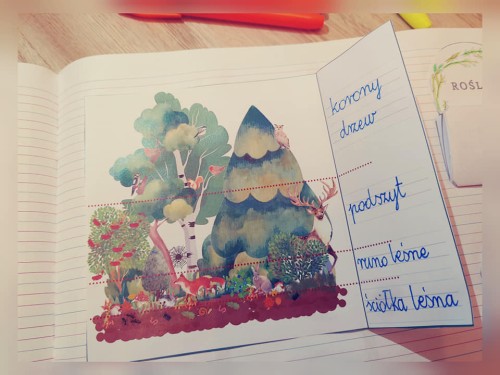 korony
drzew
podszyt
runo leśne
ściółka leśna
ROŚL